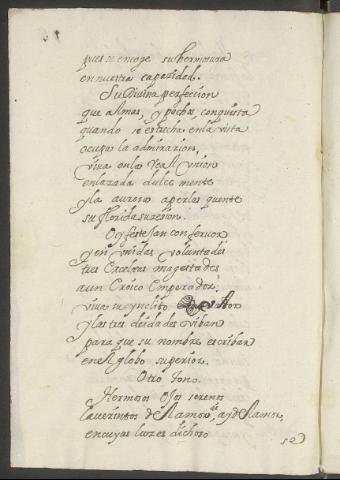 pues se encoge su hermosura
en nuestra capazidad.
Su Diuina perfeccion
que almas, y pechos conquista
quando se estrecha en la vista
ocupa la admirazion,
viua en la Real Vnion
enlazada dulce mente
y la aurora a perlas quente
su florida susesion.
Oy festejan con feruor
y en vnidas voluntades
tres Excelsas magestades
a un Eroico Emperador,
viua su ynclito
y las tres deidades viban
para que su nombre escriban
en el globo superior.
Otro Tono.
Hermosos Ojos serenos
lauerintos de el amor, ay de el amor,
en cuyas luzes dichoso
se